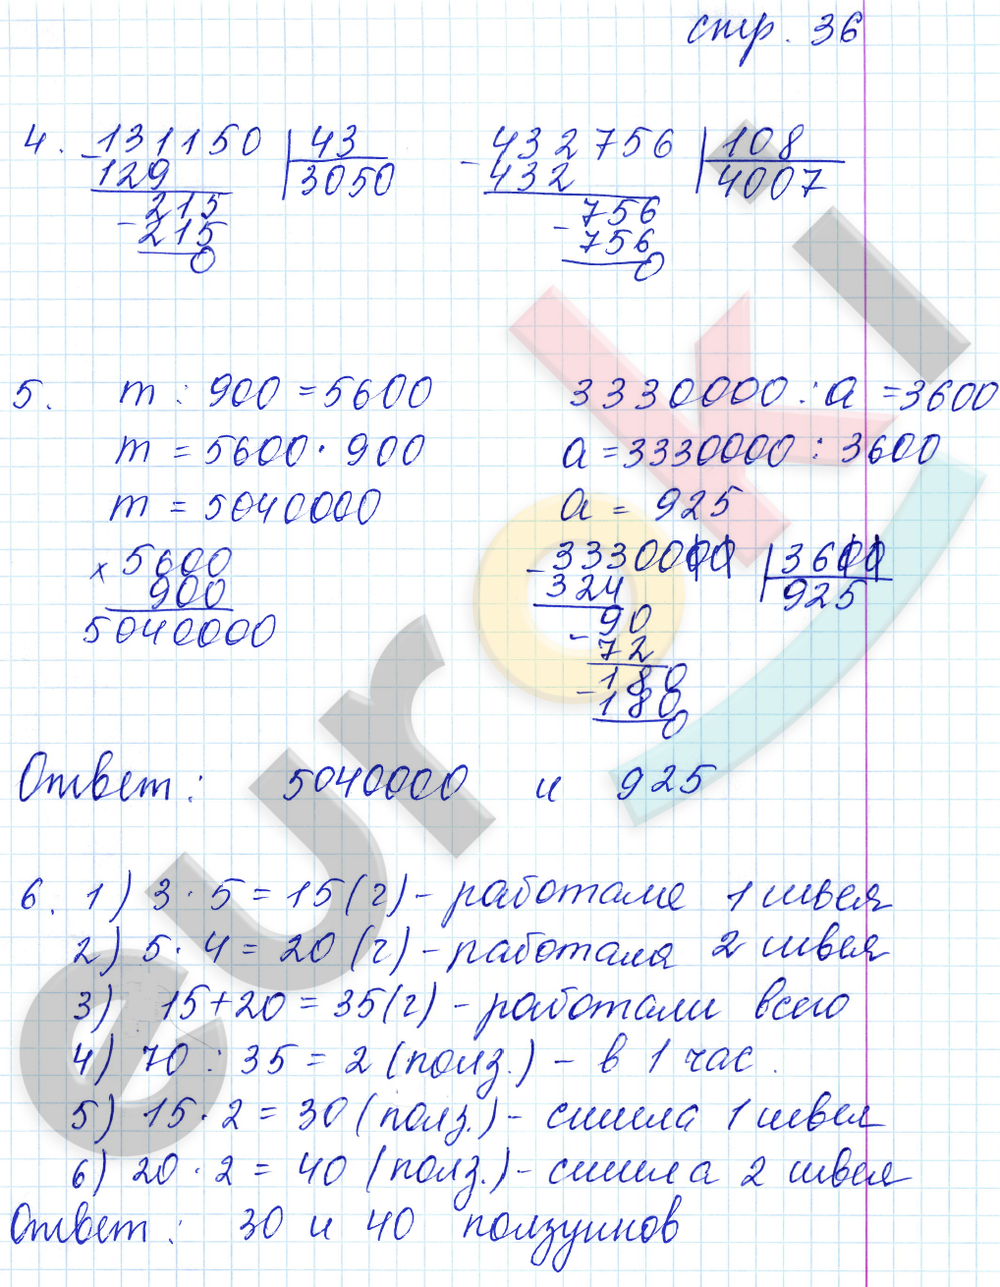 стр. 36
4. 131150 | 43
- 129 | 3050
215
- 215
0
- 432756 | 108
432 | 4007
756
- 756
0
5. m : 900 = 5600
m = 5600 · 900
m = 5040000
× 5600
900
5040000
3330000 : a = 3600
a = 3330000 : 3600
a = 925
- 3330000 | 3600
324 | 925
90
- 72
180
- 180
0
Ответ: 5040000 и 925
6. 1) 3 · 5 = 15 (ч) - работала 1 швея
2) 5 · 4 = 20 (ч) - работала 2 швея
3) 15 + 20 = 35 (ч) - работали всего
4) 70 : 35 = 2 (полз.) - в 1 час.
5) 15 · 2 = 30 (полз.) - сшила 1 швея
6) 20 · 2 = 40 (полз.) - сшила 2 швея
Ответ: 30 и 40 ползунков
euroki